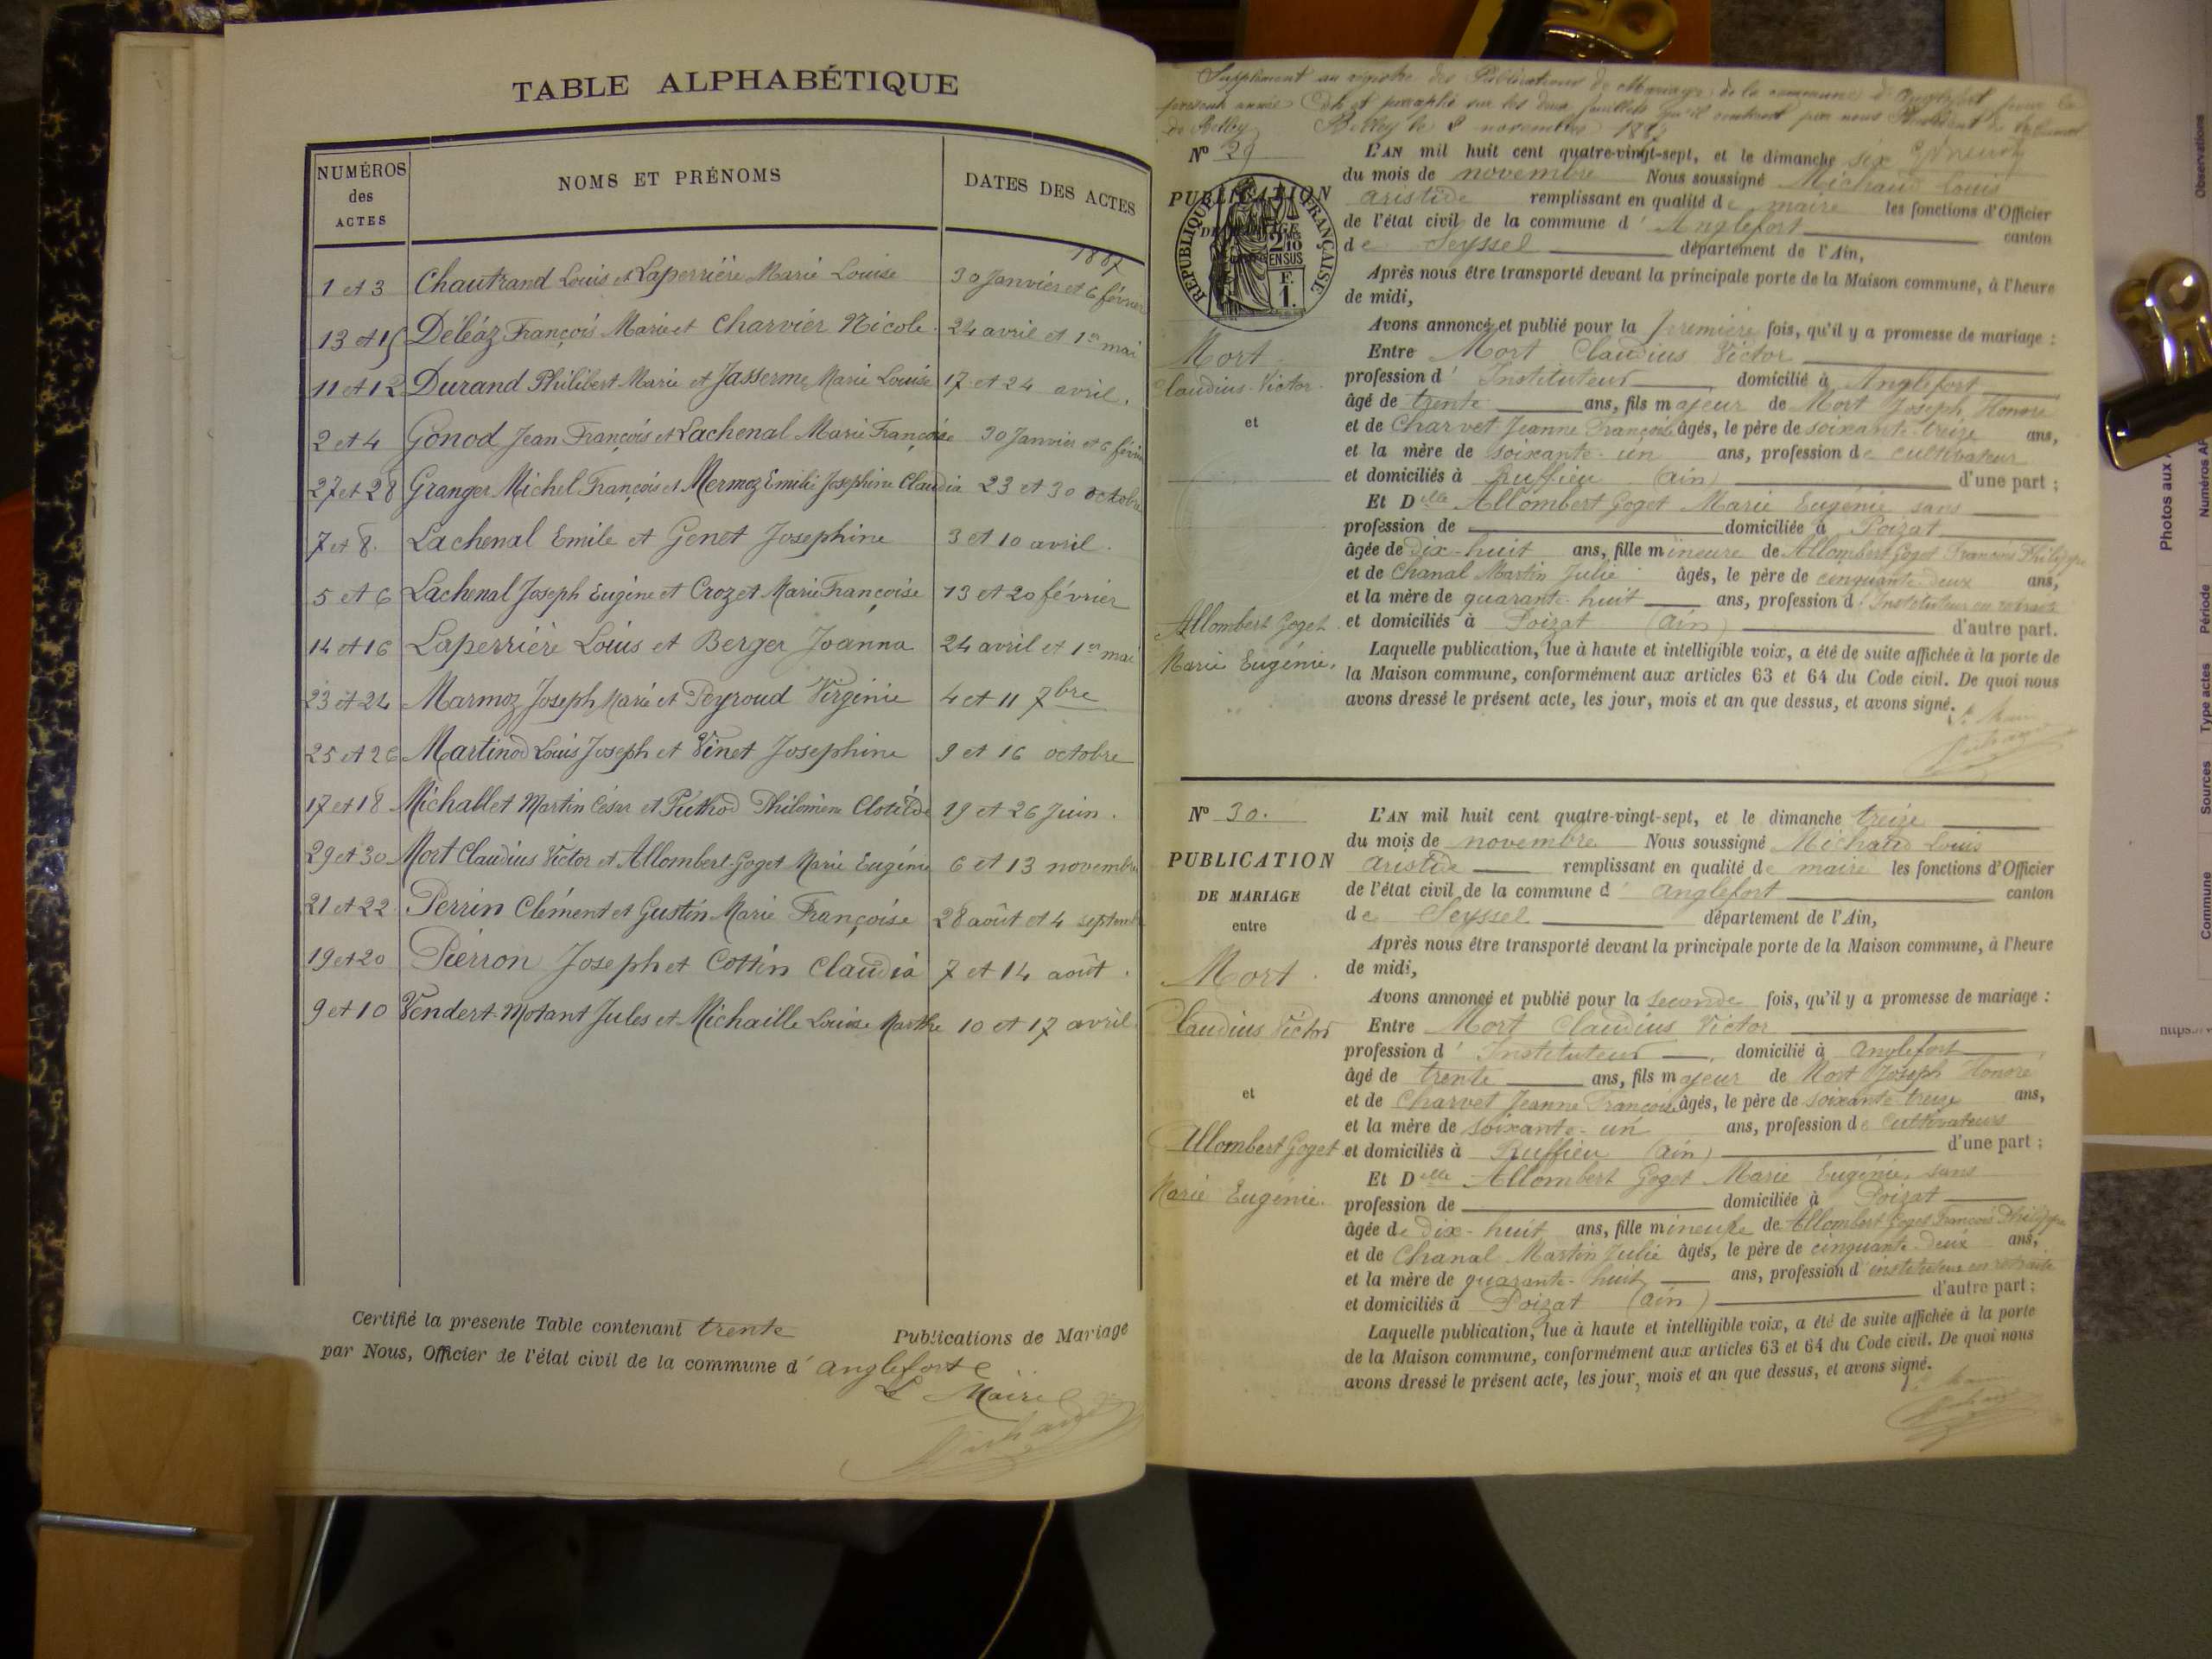 TABLE ALPHABÉTIQUE
NUMÉROS
des
ACTES
NOMS ET PRÉNOMS
DATES DES ACTES
1887
1 et 3 Chautrand Louis et Laperrière Marie Louise 30 Janvier et 6 février
13 et 15 Déléaz François Marie et Charvier Nicole. 24 avril et 1er mai
11 et 12 Durand Philibert Marie et Jasserme Marie Louise 17 et 24 avril.
2 et 4 Gonod Jean François et Lachenal Marie Françoise 30 Janvier et 6 févri
27 et 28 Granger Michel François et Mermoz Emilie Josephine Claudia 23 et 30 octobre
7 et 8. Lachenal Emile et Genet Josephine 3 et 10 avril.
5 et 6 Lachenal Joseph Eugène et Crozet Marie Françoise 13 et 20 février
14 et 16 Laperrière Louis et Berger Joanna 24 avril et 1er mai
23 et 24 Marmoz Joseph Marie et Peyroud Virginie 4 et 11 7bre
25 et 26 Martinod Louis Joseph et Vinet Josephine 9 et 16 octobre
17 et 18 Michallet Martin César et Puthod Philomène Clotilde 19 et 26 Juin.
29 et 30 Mort Claudius Victor et Allombert-Goget Marie Eugénie 6 et 13 novembre
21 et 22 Perrin Clément et Gustin Marie Françoise 28 août et 4 septemb
19 et 20 Pierron Joseph et Cottin Claudia 7 et 14 août.
9 et 10 Vendert-Motant Jules et Michaille Louise Marthe 10 et 17 avril.
Certifié la présente Table contenant trente Publications de Mariage
par Nous, Officier de l'état civil de la commune d' anglefort
Le Maire
Michaud
Supplément au registre des Publications de Mariage de la commune d'Anglefort pour la
présente année Coté et paraphé sur les deux feuillets qu'il contient par nous Président du tribunal
de Belley Belley le 8 novembre 1887
N° 29
PUBLICATION
DE MARIAGE
RÉPUBLIQUE FRANÇAISE
2/10 EN SUS
F.
1.
Mort
Claudius Victor.
et
Allombert Goget
Marie Eugénie.
L'AN mil huit cent quatre-vingt-sept, et le dimanche six
du mois de novembre Nous soussigné Michaud Louis
aristide remplissant en qualité de maire les fonctions d'Officier
de l'état civil de la commune d' Anglefort canton
de Seyssel département de l'Ain,
Après nous être transporté devant la principale porte de la Maison commune, à l'heure
de midi,
Avons annoncé et publié pour la première fois, qu'il y a promesse de mariage :
Entre Mort Claudius Victor
profession d' Instituteur, domicilié à Anglefort
âgé de trente ans, fils majeur de Mort Joseph Honoré
et de Charvet Jeanne Françoise âgés, le père de soixante-treize ans,
et la mère de soixante-un ans, profession de cultivateur
et domiciliés à Ruffieu (Ain) d'une part ;
Et Delle Allombert Goget Marie Eugénie, sans
profession de domiciliée à Poizat
âgée de Dix-huit ans, fille mineure de Allombert Goget François Philippe
et de Chanal Martin Julie âgés, le père de cinquante-deux ans,
et la mère de quarante-huit ans, profession d'Instituteur en retraite
et domiciliés à Poizat (Ain) d'autre part.
Laquelle publication, lue à haute et intelligible voix, a été de suite affichée à la porte de
la Maison commune, conformément aux articles 63 et 64 du Code civil. De quoi nous
avons dressé le présent acte, les jour, mois et an que dessus, et avons signé.
N° 30.
PUBLICATION
DE MARIAGE
entre
Mort.
Claudius Victor
et
Allombert Goget
Marie Eugénie.
L'AN mil huit cent quatre-vingt-sept, et le dimanche treize
du mois de novembre Nous soussigné Michaud Louis
aristide remplissant en qualité de maire les fonctions d'Officier
de l'état civil de la commune d' anglefort canton
de Seyssel département de l'Ain,
Après nous être transporté devant la principale porte de la Maison commune, à l'heure
de midi,
Avons annoncé et publié pour la seconde fois, qu'il y a promesse de mariage :
Entre Mort Claudius Victor
profession d' Instituteur, domicilié à anglefort
âgé de trente ans, fils majeur de Mort Joseph Honoré
et de Charvet Jeanne Françoise âgés, le père de soixante-treize ans,
et la mère de soixante-un ans, profession de cultivateurs
et domiciliés à Ruffieu (Ain) d'une part ;
Et Delle Allombert Goget Marie Eugénie, sans
profession de domiciliée à Poizat
âgée de Dix-huit ans, fille mineure de Allombert Goget François Philippe
et de Chanal Martin Julie âgés, le père de cinquante-deux ans,
et la mère de quarante-huit ans, profession d'instituteur en retraite
et domiciliés à Poizat (Ain) d'autre part ;
Laquelle publication, lue à haute et intelligible voix, a été de suite affichée à la porte
de la Maison commune, conformément aux articles 63 et 64 du Code civil. De quoi nous
avons dressé le présent acte, les jour, mois et an que dessus, et avons signé.
Observations
Photos aux
Période
Type actes
Sources
Commune